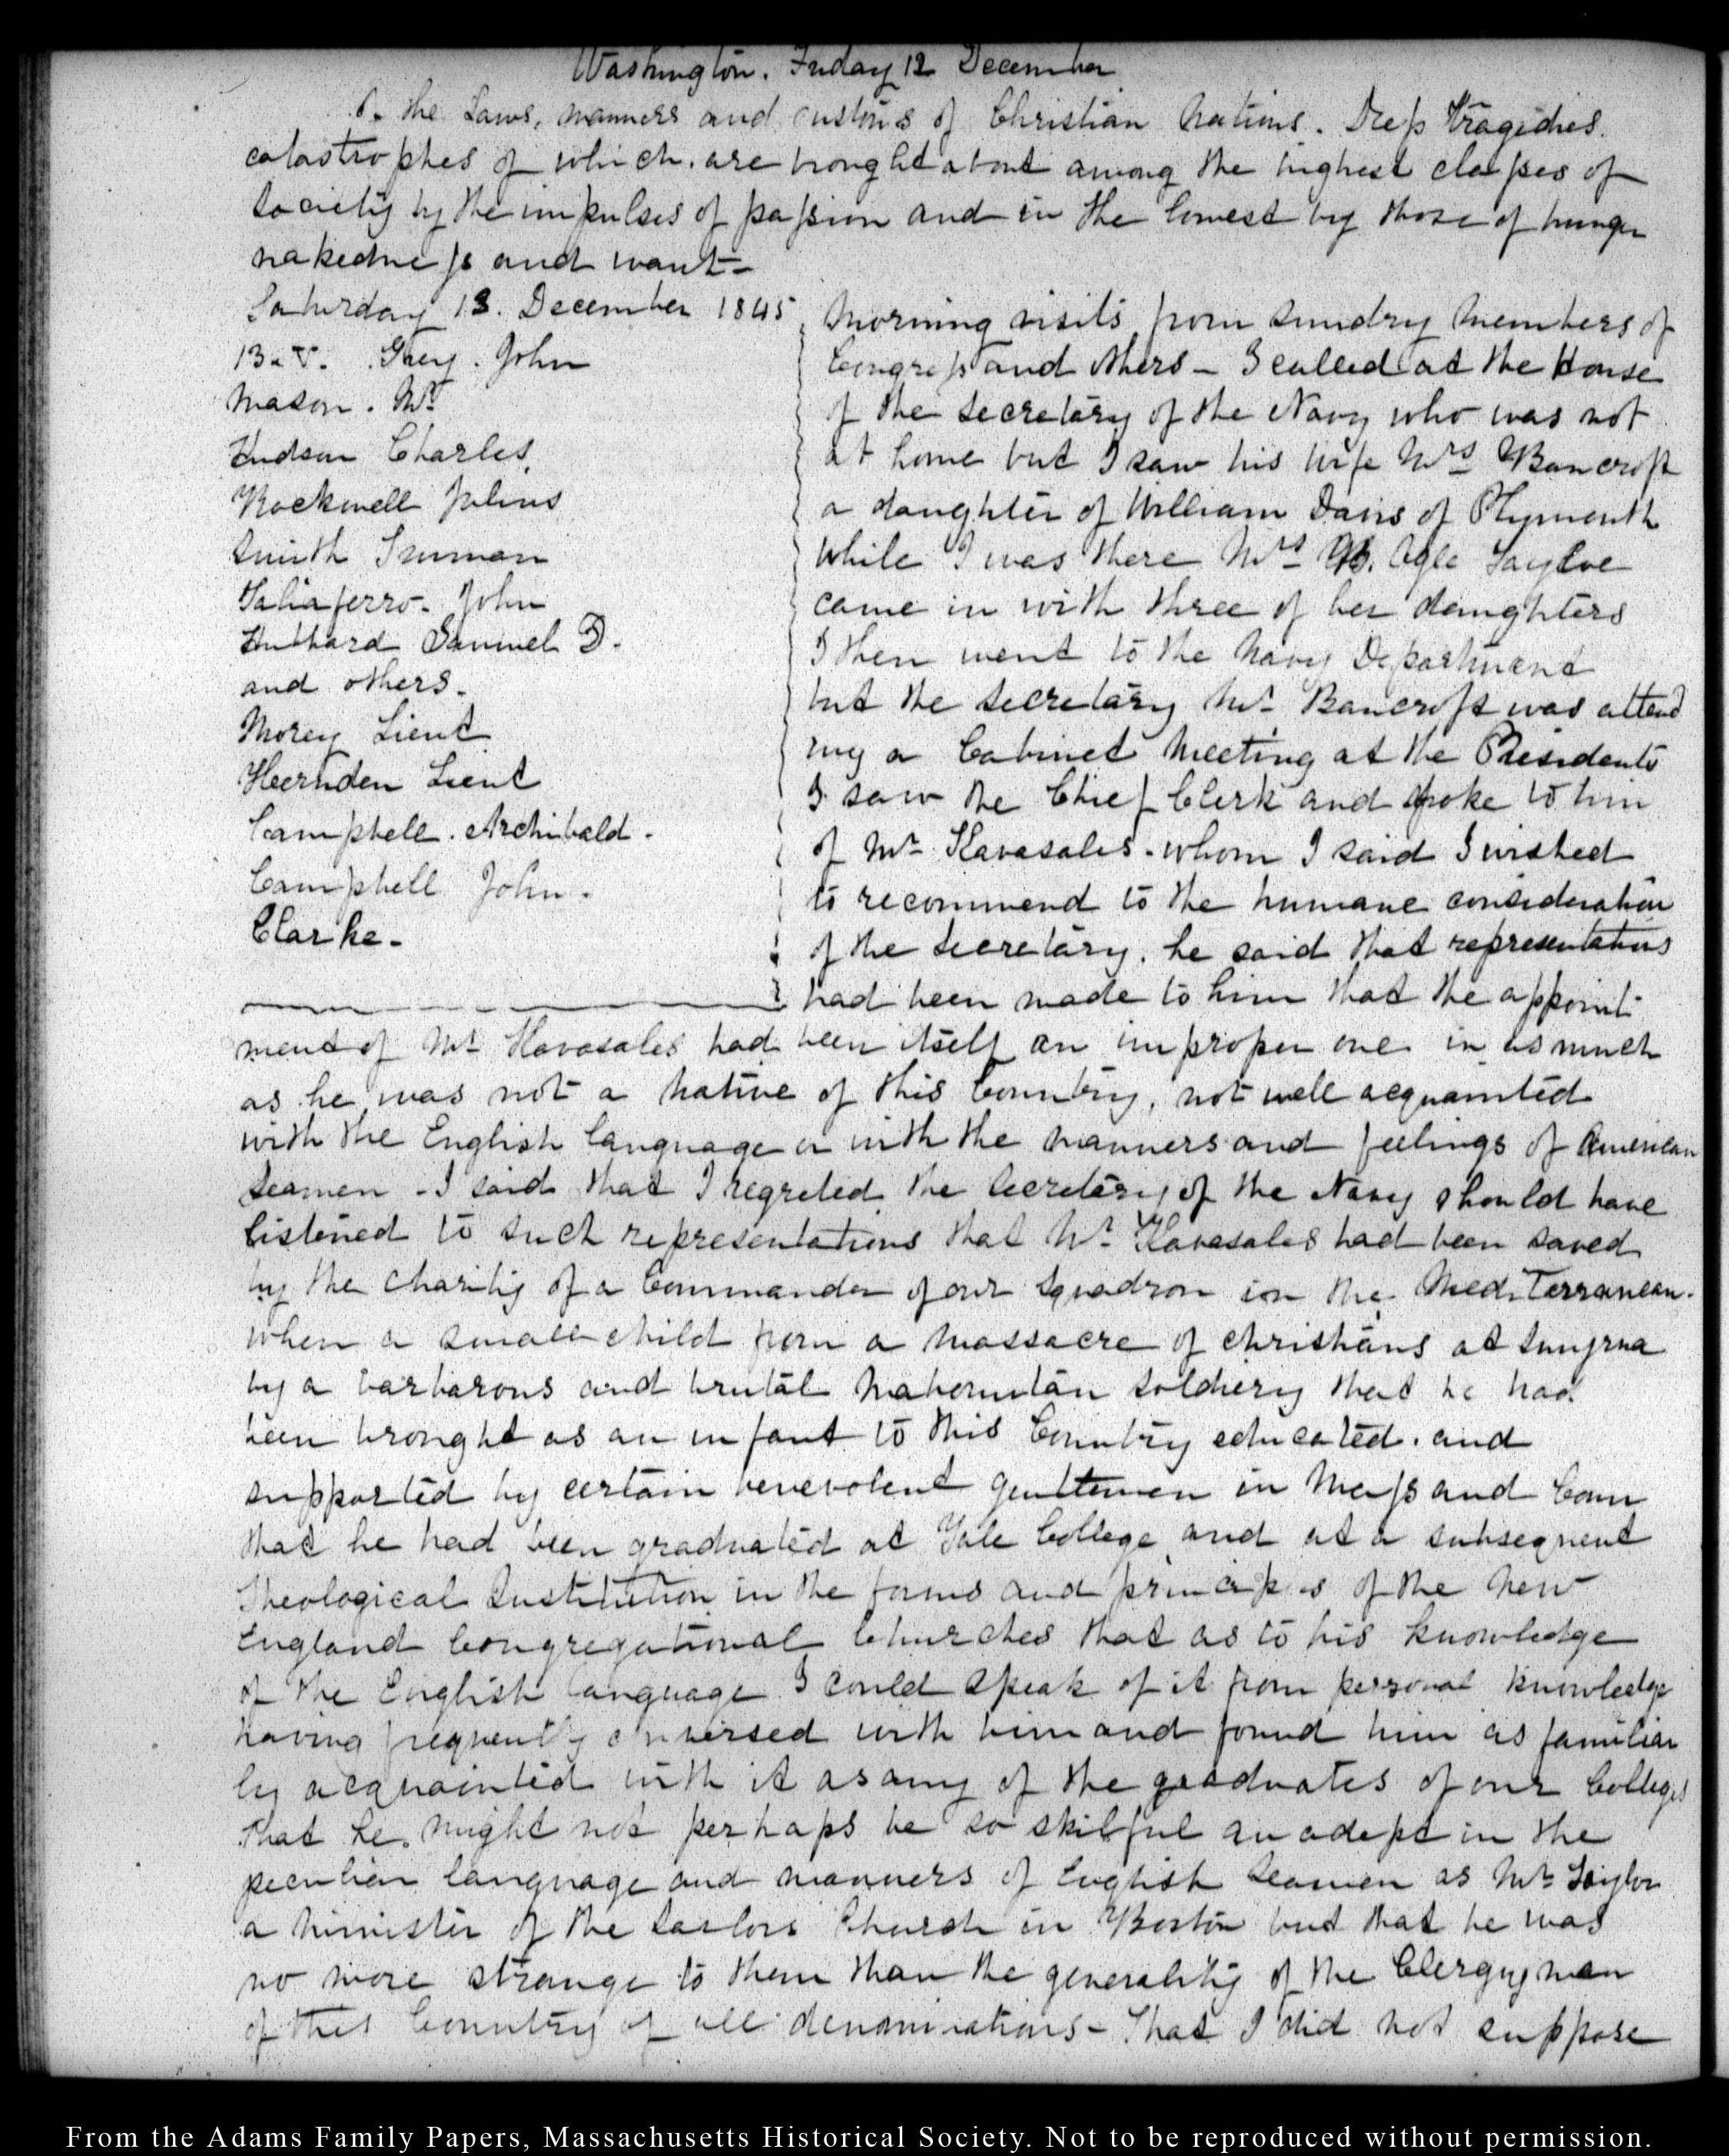 Washington. Friday 12 December
to the Laws, manners and customs of Christian Nations. Deep Tragedies.
catastrophes of which are brought about among the highest classes of
Society by the impulses of passion and in the lowest by those of hunger
nakedness and want-
Saturday 13. December 1845
13-V. Grey. John
Mason. Mr.
Hudson Charles.
Rockwell Julius
Smith Truman
Taliaferro. John
Hubbard Samuel D.
and others.
Morey Lieut
Hernden Lieut
Campbell. Archibald.
Campbell John.
Clarke.
Morning visits from sundry members of
Congress and others - I called at the House
of the Secretary of the Navy who was not
at home but I saw his wife Mrs Bancroft
a daughter of William Davis of Plymouth
while I was there Mrs B. Ogle Tayloe
came in with three of her daughters
I then went to the Navy Department
but the Secretary Mr. Bancroft was attend
ing a Cabinet meeting at the Presidents
I saw the Chief Clerk and spoke to him
of Mr. Kavasales. whom I said I wished
to recommend to the humane consideration
of the Secretary. he said that representations
had been made to him that the appoint-
ment of Mr. Kavasales had been itself an improper one in as much
as he was not a native of this Country, not well acquainted
with the English language or with the manners and feelings of American
Seamen - I said that I regreted the Secretary of the Navy should have
listened to such representations that Mr. Kavasales had been saved
by the charity of a Commander of our Squadron in the Mediterranean.
when a small child from a massacre of christians at Smyrna
by a barbarous and brutal Mahomitan soldiery that he had
been brought as an infant to this Country educated. and
supported by certain benevolent gentlemen in Mass and Conn
that he had been graduated at Yale College and at a subsequent
Theological Institution in the forms and principles of the New
England Congregational Churches that as to his knowledge
of the English language I could speak of it from personal knowledge
having frequently conversed with him and found him as familiar
ly acquainted with it as any of the graduates of our Colleges
that he might not perhaps be so skilful an adept in the
peculiar language and manners of English Seamen as Mr. Taylor
a minister of the Sailors Church in Boston but that he was
no more strange to them than the generality of the Clergymen
of this Country of all denominations - That I did not suppose
From the Adams Family Papers, Massachusetts Historical Society. Not to be reproduced without permission.